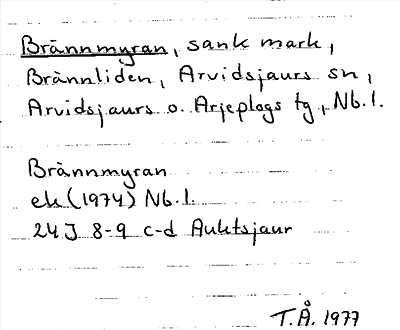 Brännmyran, sank mark,
Brännliden, Arvidsjaurs sn,
Arvidsjaurs o. Arjeplogs tg, Nb.l.
Brännmyran
ek (1974) Nb.l.
24J 8-9 c-d Auktsjaur
T.Å. 1977